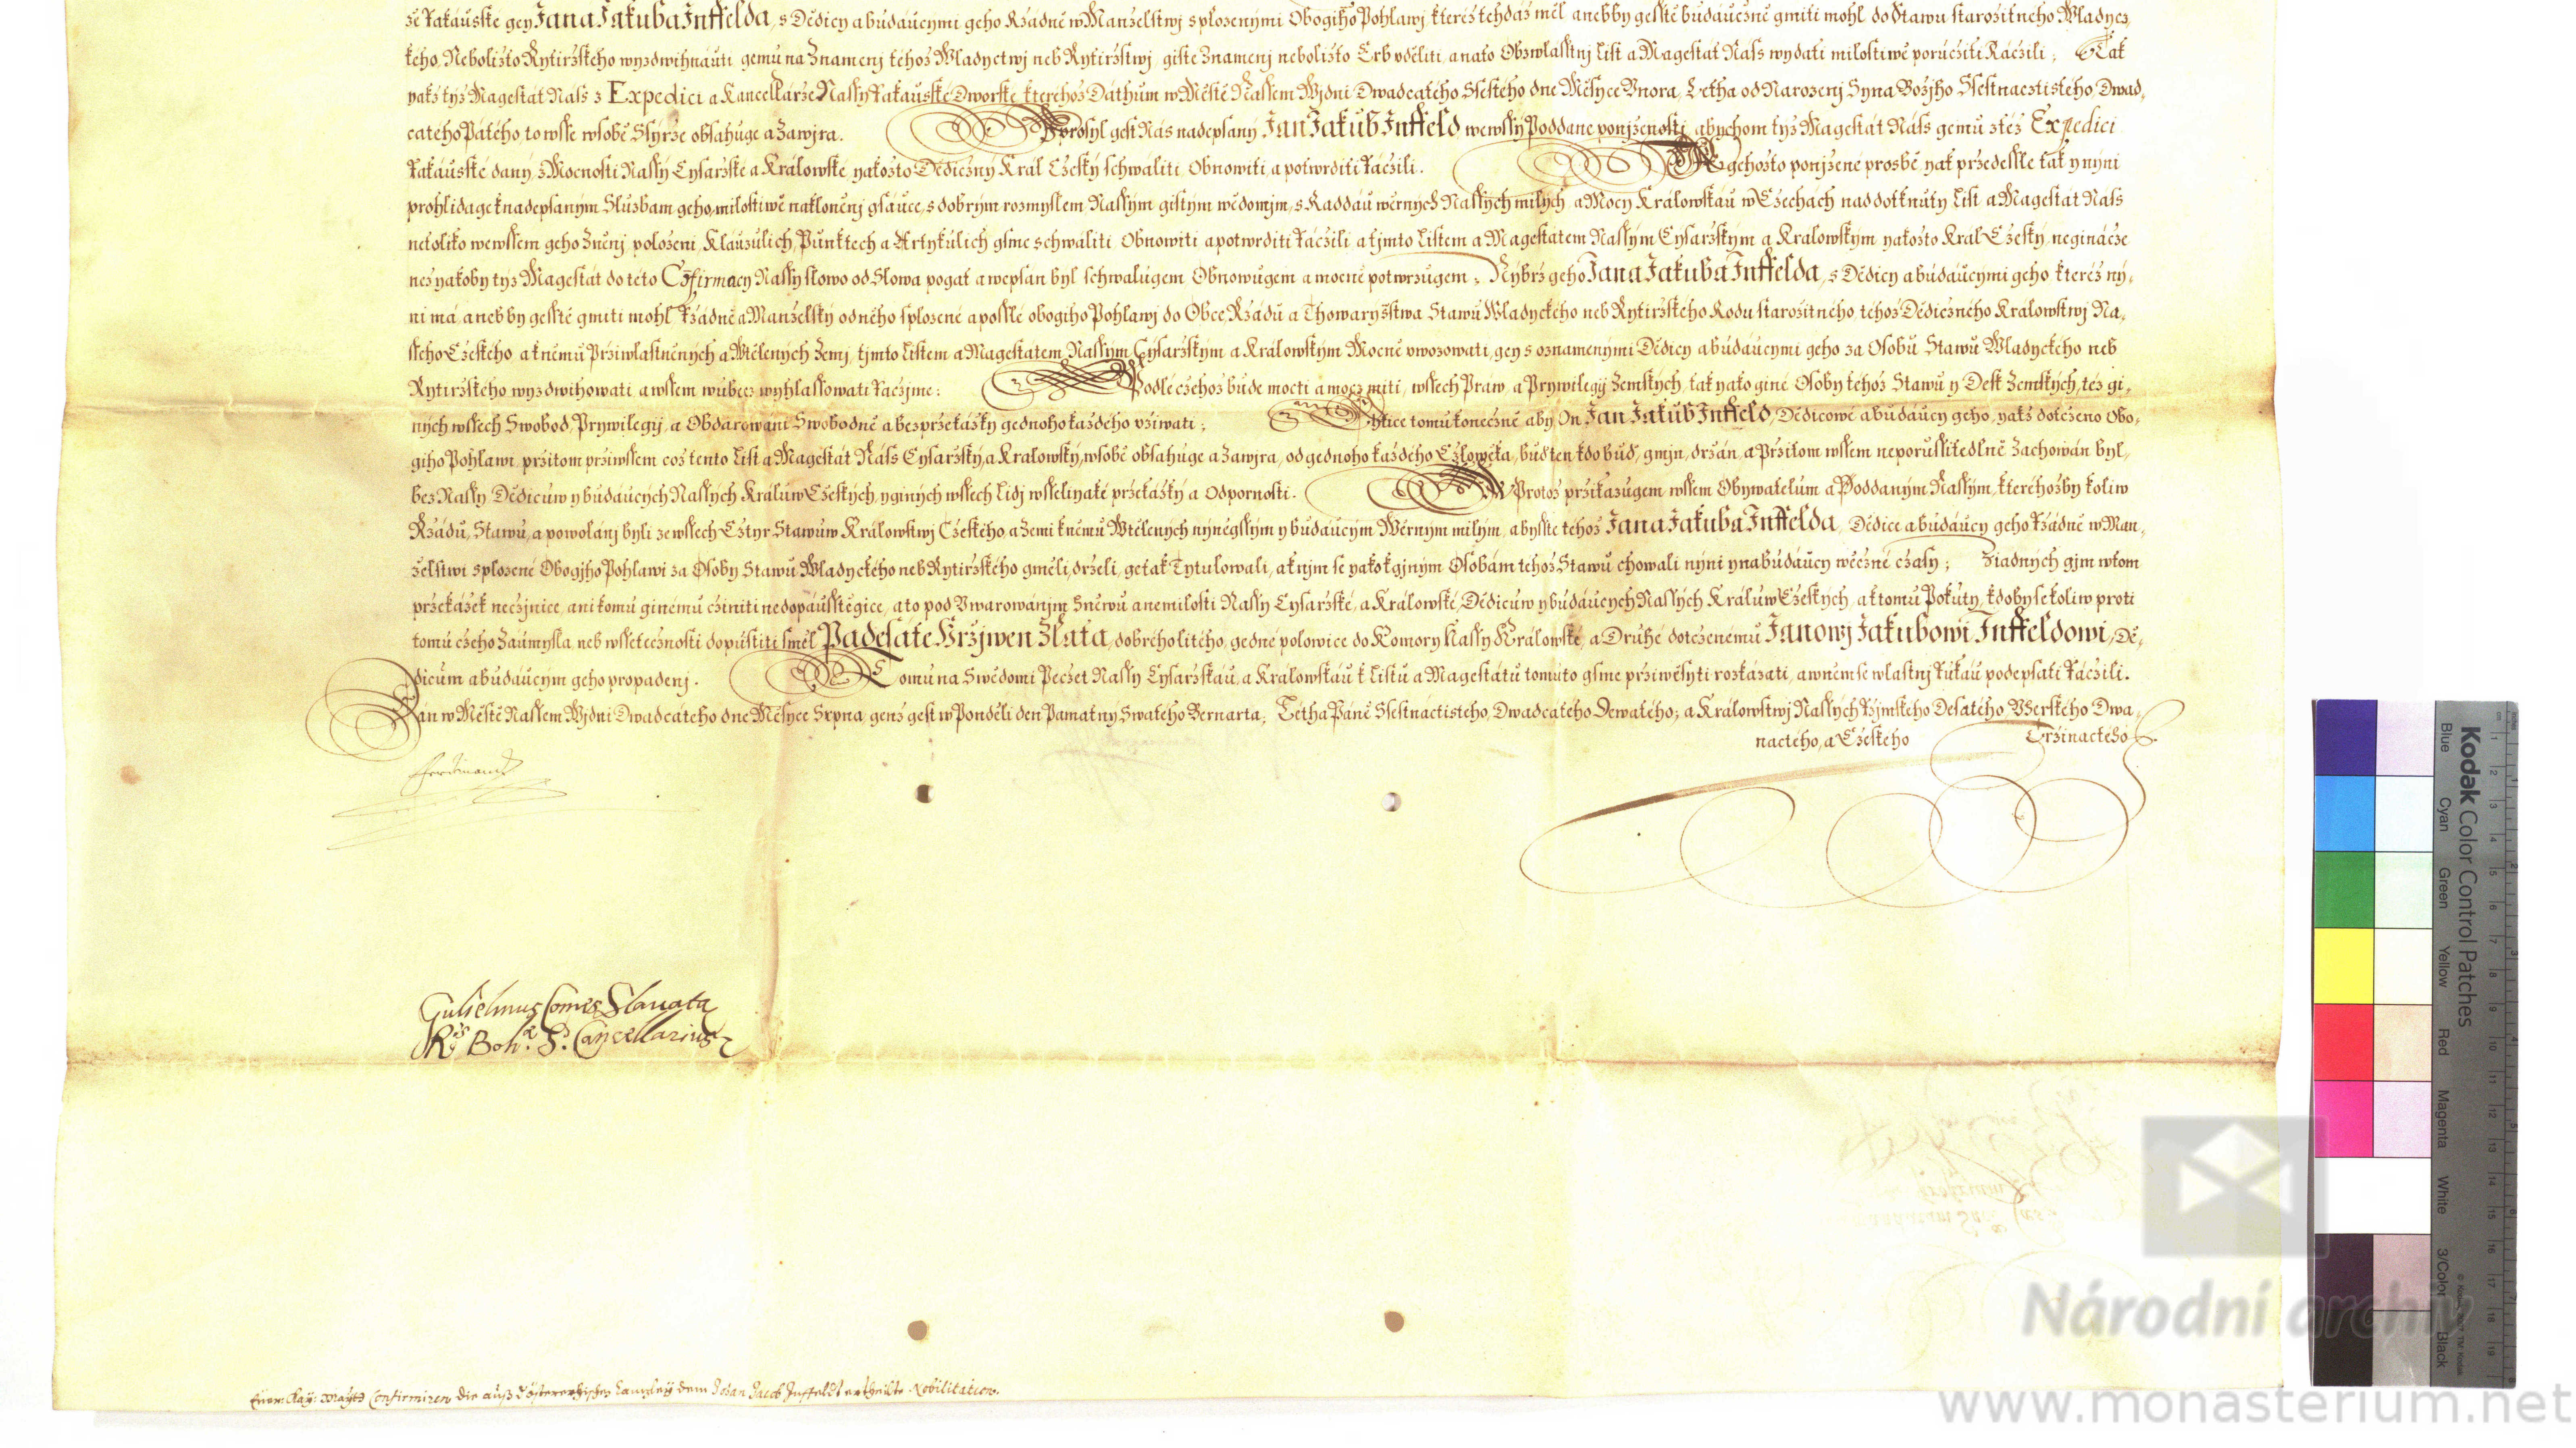 že Rakauske gey Jana Jakuba Inffelda, s Dědicy a búdaúcymi geho Ržádně w Manželstwj splozenými Obogiho Pohlawj kteréž tehdáž měl anebby gesstě búdaúczně gmiti mohl do Stawu starožitného Wladycz,
kého, Neboližto Rytiržského wyzdwihnaúti gemu na Znamenj téhož Wladyctwj neb Rytiržstwj giste Znamenj neboližto Erb vděliti a nato Obzwlasstnj List a Magestat Nass wydati milostiwě porúčžiti Ráčžili; Tak
yakž týž Magestát Náss z Expedici a Kancellárže Nassy Rakauské Dworské, kteréhož Dáthum w Městě Nassem Wjdni Dwadcatého Ssestého dne Měsyce Vnora, Letha od Narozenj Syna Božjho Ssestnacztistého, Dwad,
catého Pátého, to wsse w sobě Ssýrže obsahuge a Zawjra. Y prosyl gest Nás nadepsaný Jan Jakub Inffeld we wssý Poddané ponjženosti, abychom týž Magestát Náss gemu z též Expedici
Rakáuské daný, z Mocnosti Nassý Cysaržské a Králowské, yakožto Dědičzný Král Cžeský schwáliti, Obnowiti, a potwrditi ráčžili. K gehožto ponjžené prosbě yak prżedessle tak y nyní
prohlidagjc k nadepsaným Službam geho, milostiwě nakloněnj gsauce, s dobrým rozmyslem, Nassým gistým wědomjm, s Raddau wěrných Nassých milých, a Mocy Králowskau w Cžechách nad dotknutý List a Magestát Náss
netoliko we wssem geho Zněnj, položení, Klauzulich, Punktech a Artykulich gsme schwáliti Obnowiti a potwrditi ráčžili a tjmto Listem a Magestatem Nassým Cysaržským a Kralowským yakožto Král Cžeský, neginácže
než yakoby týž Magestát do této Cõfirmacy Nassý slowo od Slowa pogat a wepsán byl schwalugem Obnowugem a mocně potwrzugem; Nýbrž geho Jana Jakuba Inffelda, s Dědicy a búdaúcymi geho, kteréž ný,
ni má, anebby gesstě gmiti mohl Ržádně a Manželský od něho splozené a posslé obogiho Pohlawj do Obce, Ržádu a Thowaryžstwa Stawu Wladyckého neb Rytiržského Rodu starožitného, téhož Dědičzného Králowstwj Na,
sseho Cžeského a k němu Prziwlastněných a Wtělených Zemj, tjmto Listem a Magestatem Nassým Cysaržským a Králowským Mocně vwozowati, gey s oznamenými Dědicy a búdaúcymi geho za Osobu Stawu Wladyckého neb
Rytiržského wyzdwihowati a wssem wubecz wyhlassowati ráčžjme: Podlé cžehož bude mocti a mocz miti, wssech Práw, a Prywilegij Zemských, tak yako giné Osoby téhož Stawu y Desk Zemských, též gi,
ných wssech Swobod, Prywilegij, a Obdarowani Swobodně a bez prżekážky gednoho každého vžiwati; Chtice tomu konečzně aby On Jan Jakub Inffeld, Dědicowé a búdaúcy geho, yakž dotčženo Obo,
giho Pohlawi, pržitom pržiwssem což tento List a Magestát Náss Cysaržský, a Kralowský, w sobě obsahuge a Zawjra, od gednoho každého Cžlowěka, buď ten kdo buď, gmjn, držán, a Pržitom wssem neporussitedlně Zachowán byl,
bez Nassý, Dědicúw y búdaúcých Nassých Králúw Cžeských, y giných wssech Lidj wsseliyaké pržekážký a Odpornosti. Protož pržikazugem wssem Obywatelům a Poddaným Nassým, kteréhožby koliw
Ržádu, Stawu, a powolánj byli ze wssech Cžtyr Stawůw Králowstwj Cžeského, a Zemi k němu Wtělených nyněgssým y búdaúcým Wěrným milým, abysste téhož Jana Jakuba Inffelda, Dědice a búdaúcy geho Ržádně w Man,
želstwi splozené Obogjho Pohlawi za Osoby Stawu Wladyckého neb Rytiržského gměli, drželi, ge tak Tytulowali, a k njm se yako k gjným Osobám téhož Stawu chowali nýni y na búdaúcy wěčžné cžasy; Žiadných gjm w tom
pržekážek nečžjnice, ani komu ginému cžiniti nedopausstěgice, a to pod Vwarowánjm Zněwu a nemilosti Nassy Cysaržské, a Králowské, Dědicúw y búdaúcých Nassých Králúw Cžeských, a k tomu Pokuty, kdoby se koliw proti
tomu cžeho Zaúmysla, neb wssetečznosti dopustiti směl Padesáte Hržjwen Zlata, dobrého litého, gedné polowice do Komory Nassý Králowské, a Druhé dotčženému Janowj Jakubowi Inffeldowi, Dě,
dicům a búdaúcým geho propadenj. Tomu na Swědomi Pečzet Nassý Cysaržskau, a Králowskau k Listu a Magestátu tomuto gsme pržiwěsyti rozkázati, a w něm se wlastnj Rukau podepsati ráčžili.
Dán w Městě Nassem Wjdni Dwadcátého dne Měsyce Srpna, genž gest w Pondělí den Památný Swatého Bernarta; Létha Páně Ssestnáctistého, Dwadcátého Dewátého; a Králowstwj Nassých Ržjmského Desátého, Vherského Dwa,
náctého, a Cžeského Tržináctého.
Ferdinandt
Gulielmus Comes Slauata
R.s Boh.æ S. Cancellarius
Euer: Kay: Mayst: Confirmiren die auß Össterreichischer Cantzley dem Johan Jacob Inffeldt ertheilte Nobilitation.
Kodak Color Control Patches
Blue Cyan Green Yellow Red Magenta White 3/Color Black
Národní archiv
www.monasterium.net